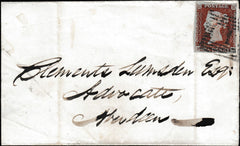 POSTAGE
Clements Lumsden Esqr
Advocate,
Aberdeen